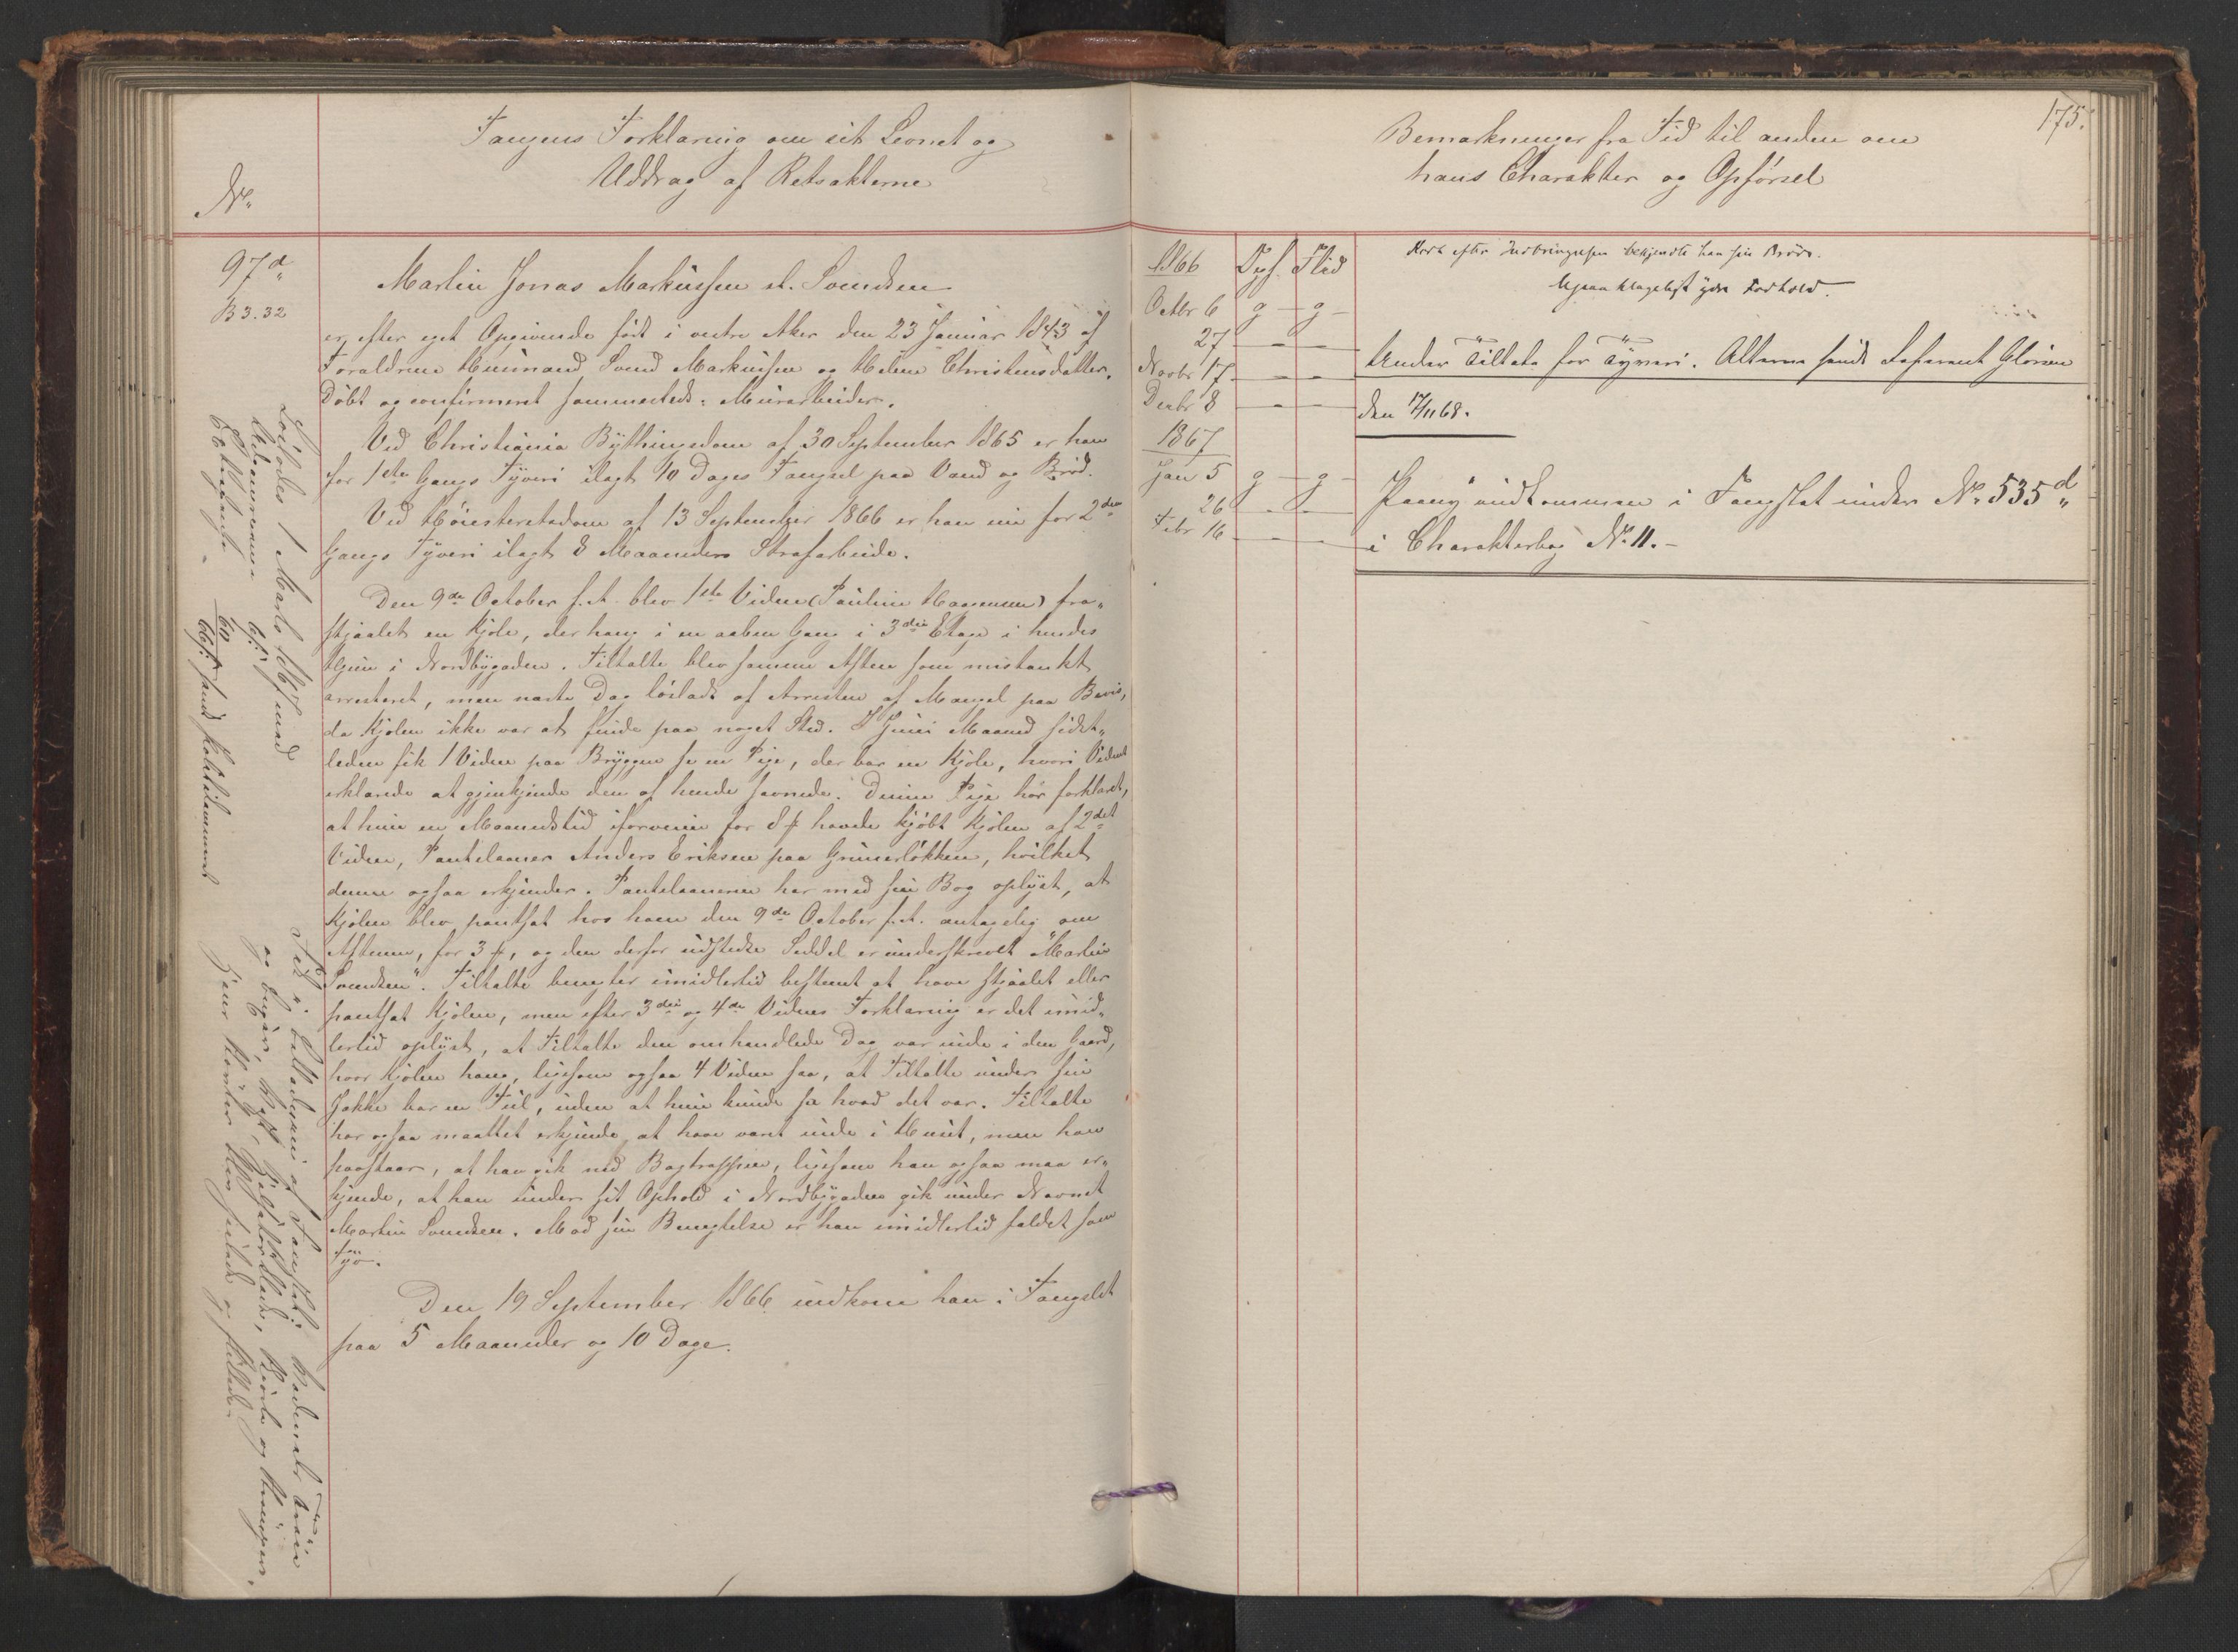 Fangens Forklaring om sit Levnet og
Uddrag af Retsakterne
No.
97d
B 3.32
Martin Jonas Markussen el. Svendsen
er efter eget Opgivende født i vestre Aker den 23 Januar 1843 af
Forældrene Husmand Svend Markussen og Helene Christensdatter.
Døbt og confirmeret sammesteds. Murarbeider.
Ved Christiania Bythingsdom af 30 September 1865 er han
for 1ste Gangs Tyveri ilagt 10 Dages Fængsel paa Vand og Brød.
Ved Høiesteretsdom af 13 September 1866 er han nu for 2den
Gangs Tyveri ilagt 8 Maaneders Strafarbeide.
Den 9de October f. A. blev 1ste Vidne (Pauline Haagensen) fra-
stjaalet en Kjole, der hang i en aaben Gang i 3die Etage i hendes
Hjem i Nordbygaden. Tiltalte blev samme Aften som mistænkt
arresteret, men næste Dag løsladt af Arresten af Mangel paa Bevis,
da Kjolen ikke var at finde paa noget Sted. I Juni Maaned sidst-
leden fik 1 Vidne paa Bryggen se en Pige, der bar en Kjole, hvori Vidnet
erklærede at gjenkjende den af hende savnede. Denne Pige har forklaret,
at hun en Maanedstid iforveien for 8 f havde kjøbt Kjolen af 2det
Vidne, Pantelaaner Anders Eriksen paa Grünerløkken, hvilket
denne ogsaa erkjender. Pantelaaneren har med sin Bog oplyst, at
Kjolen blev pantsat hos ham den 9de October f. A. antagelig om
Aftenen, for 3 f, og den derfor udstedte Seddel er underskrevet "Martin
Svendsen". Tiltalte benegter imidlertid bestemt at have stjaalet eller
pantsat Kjolen, men efter 3die og 4de Vidnes Forklaring er det imid-
lertid oplyst, at Tiltalte den omhandlede Dag var inde i den Gaard,
hvor Kjolen hang, ligesom ogsaa 4 Vidne saa, at Tiltalte under sin
Jakke bar en Ting, uden at hun kunde se hvad det var. Tiltalte
har ogsaa maattet erkjende at have været inde i Huset, men han
paastaar, at han gik ned Bagtrappen, ligesom han ogsaa maa er-
kjende, at han under sit Ophold i Nordbygaden gik under Navnet
Martin Svendsen. Mod sin Benegtelse er han imidlertid fældet som
Tyv.
Den 19 September 1866 indkom han i Fængslet
paa 5 Maaneder og 10 Dage.
Løslodes 1 Marts 1867 med
sendt
175.
Bemærkninger fra Tid til anden om
hans Charakter og Opførsel
1866 Opf. Flid
Octbr 6 g g
27 - -
Novbr 17 - -
Decbr 8 - -
1867
Jan 5 g g
26 - -
Febr 16 - -
Kort efter Indbringelsen bekjendte han sin Brøde.
Upaaklageligt ydre Forhold.
Under Tiltale for Tyveri. Atterne sendt
den 17/11 68.
Paany indkommen i Fængslet under No. 535d
i Charakterbog No. 11.